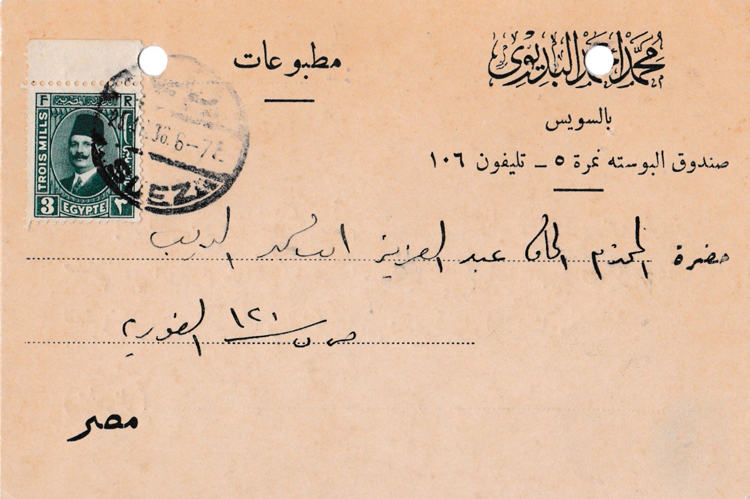 مطبوعات
محمد أحمد البديوى
بالسويس
صندوق البوسته نمرة ٥ ــ تليفون ١٠٦
F R
TROIS MILLS
3 EGYPTE ٣
36.6-7
SUEZ
حضرة المحترم الحاج عبد العزيز
ص ن ١٢١ الغورية
مصر